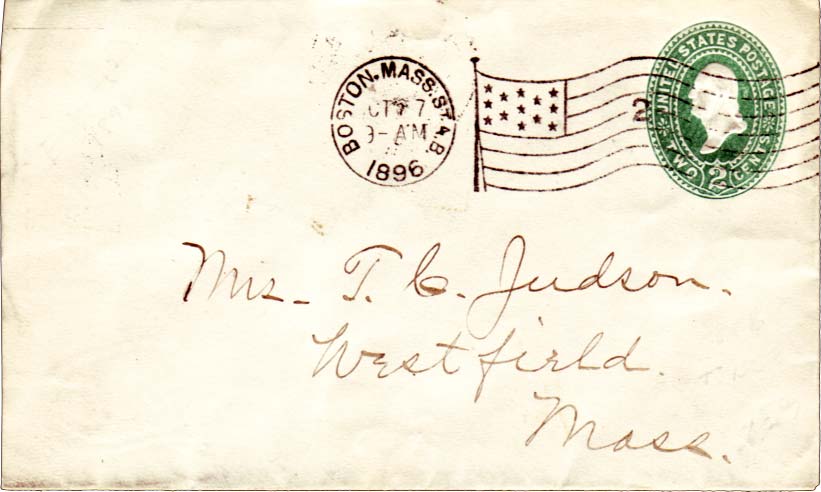 BOSTON, MASS. STA. B.
OCT 7
9-AM
1896
2
UNITED STATES POSTAGE
TWO 2 CENTS
Mrs - T. C. Judson.
Westfield.
Mass.